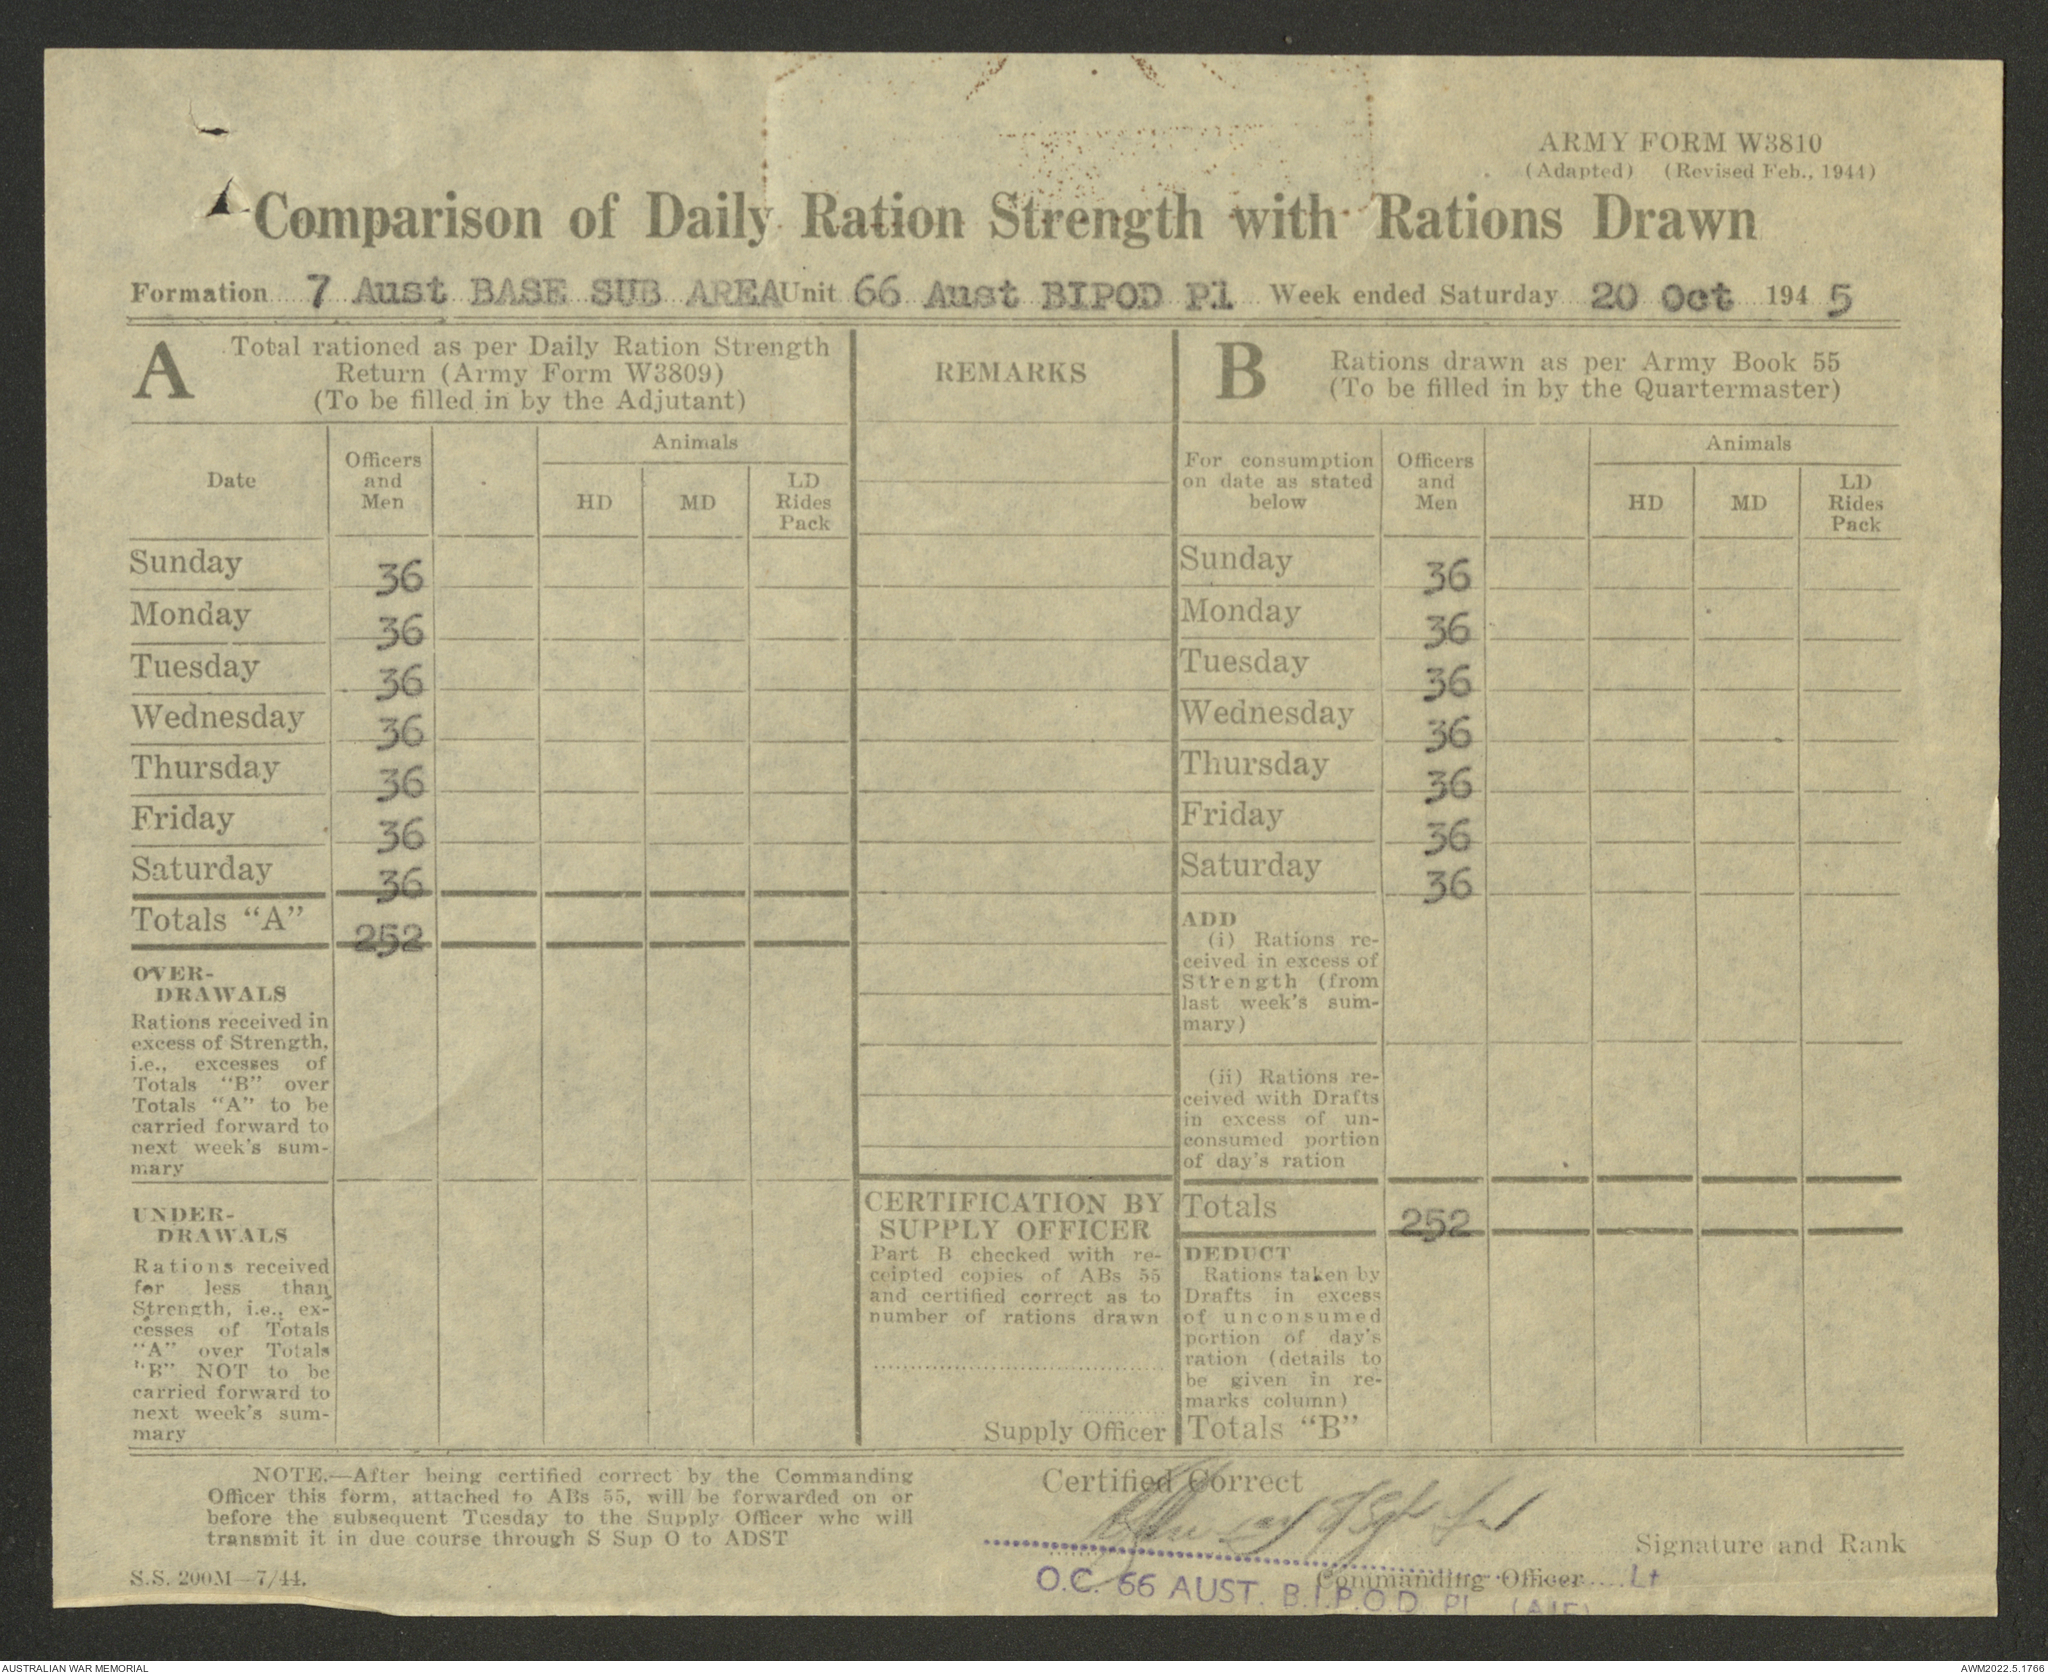 ARMY FORM W3810
(Adapted) (Revised Feb., 1944)
Comparison of Daily Ration Strength with Rations Drawn
Formation 7 Aust BASE SUB AREA Unit 66 Aust BIPOD Pl Week ended Saturday 20 Oct 194 5
A Total rationed as per Daily Ration Strength
Return (Army Form W3809)
(To be filled in by the Adjutant)
REMARKS
B Rations drawn as per Army Book 55
(To be filled in by the Quartermaster)
Date
Officers
and
Men
Animals
HD
MD
LD
Rides
Pack
For consumption
on date as stated
below
Officers
and
Men
Animals
HD
MD
LD
Rides
Pack
Sunday 36 Sunday 36
Monday 36 Monday 36
Tuesday 36 Tuesday 36
Wednesday 36 Wednesday 36
Thursday 36 Thursday 36
Friday 36 Friday 36
Saturday 36 Saturday 36
Totals "A" 252
OVER-
DRAWALS
Rations received in
excess of Strength,
i.e., excesses of
Totals "B" over
Totals "A" to be
carried forward to
next week's sum-
mary
UNDER-
DRAWALS
Rations received
for less than
Strength, i.e., ex-
cesses of Totals
"A" over Totals
"B" NOT to be
carried forward to
next week's sum-
mary
CERTIFICATION BY
SUPPLY OFFICER
Part B checked with re-
ceipted copies of ABs 55
and certified correct as to
number of rations drawn
Supply Officer
ADD
(i) Rations re-
ceived in excess of
Strength (from
last week's sum-
mary)
(ii) Rations re-
ceived with Drafts
in excess of un-
consumed portion
of day's ration
Totals 252
DEDUCT
Rations taken by
Drafts in excess
of unconsumed
portion of day's
ration (details to
be given in re-
marks column)
Totals "B"
NOTE.—After being certified correct by the Commanding
Officer this form, attached to ABs 55, will be forwarded on or
before the subsequent Tuesday to the Supply Officer who will
transmit it in due course through S Sup O to ADST
S.S. 200M—7/44.
Certified Correct
Signature and Rank
Commanding Officer Lt
O.C. 66 AUST. B.I.P.O.D. Pl. (AIF)
AUSTRALIAN WAR MEMORIAL
AWM2022.5.1766